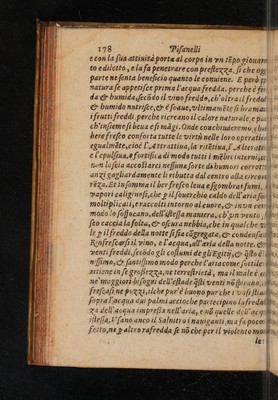 178 Pisanelli
e con la sua attività porta al corpo in un tẽpo giouamen
to e diletto, e la fa penetrare con prestezza, sì che ogni
parte ne senta beneficio quanto le conuiene. E però la
natura se appetisce prima l'acqua fredda, perche è fred
da & humida, secõdo il vino freddo, ch'oltra il freddo,
& humido nutrisce, & è soaue, vltimamẽte si bramano
i frutti freddi, perche ricreano il calore naturale, e par
ch'insieme si beua e si mãgi. Onde conchiuderemo, che'l
bere fresco conforta tutte le virtù nelle loro operationi
egualmẽte, cioè l'attrattiua, la ritẽtiua, l'alteratiua,
e l'epulsiua, e fortifica di modo tutti i mẽbri interni, che
non lascia accostarsi nessuna sorte di humori corrotti,
anzi gagliardamente li ributta dal centro alla circonfe
rẽza. Et in somma il ber fresco leua e sgombra i fumi, e
vapori caliginosi, che p il souerchio caldo dell'aria sono
moltiplicati, e raccolti intorno al cuore, & in un certo
modo lo soffocano, dell'istessa maniera, ch'vn vento fre
sco caccia la folta, & oscura nebbia, che in qualche val
le p il freddo della notte si sia cõgregata, & condensata.
Rinfrescarsi il vino, e l'acqua, all'aria della notte, & à
venti freddi, secõdo gli costumi de gl'Egitij, & q̃sto è sa
nissimo, & santissimo modo perche l'aria come sottile
sitione in se grossezza, ne terrestrità, ma il male è, che
ne' maggiori bisogni dell'estade q̃sti venti nõ spirano.
frescasi ne pozzi, il che pur'è buono pur che i vasi stiano
sopra l'acqua dui palmi acciò che partecipino la fredez
za dell'acqua impressa nell'aria, e nõ quelle dell'acqua
istessa. Vsano anco il Salnitro i nauiganti, ma fa poco ef
fetto, ne p altro rafredda se nõ che per il violento moto
le